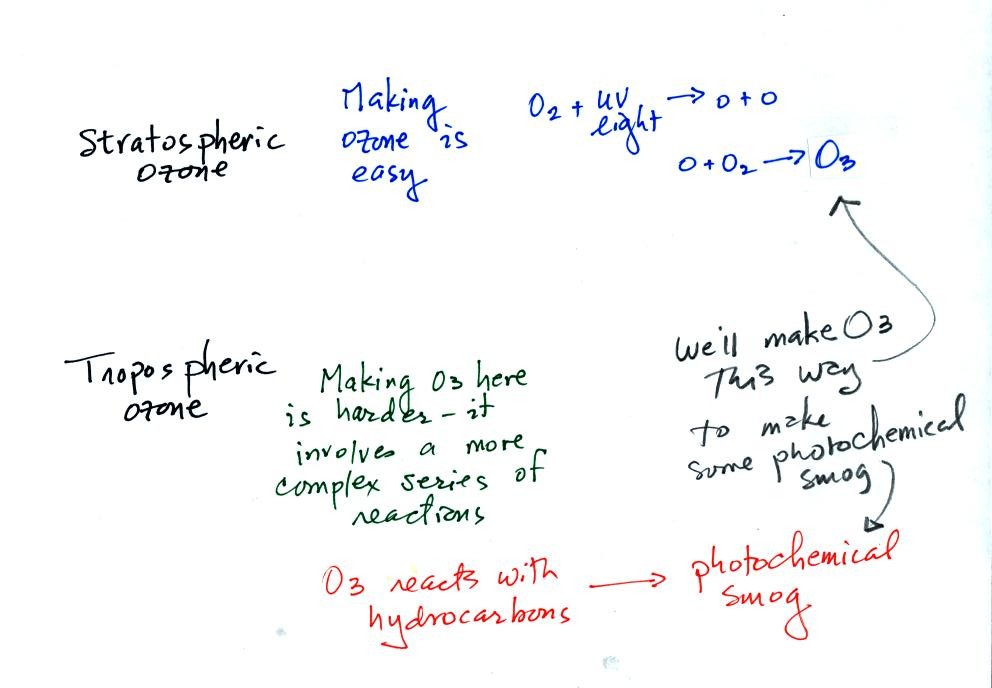 Stratospheric
ozone
Making
ozone is
easy
O2 + UV
light → O + O
O + O2 → O3
Tropospheric
ozone
Making O3 here
is harder - it
involves a more
complex series of
reactions
We'll make O3
This way
to make
some photochemical
smog
O3 reacts with
hydrocarbons
→ photochemical
smog